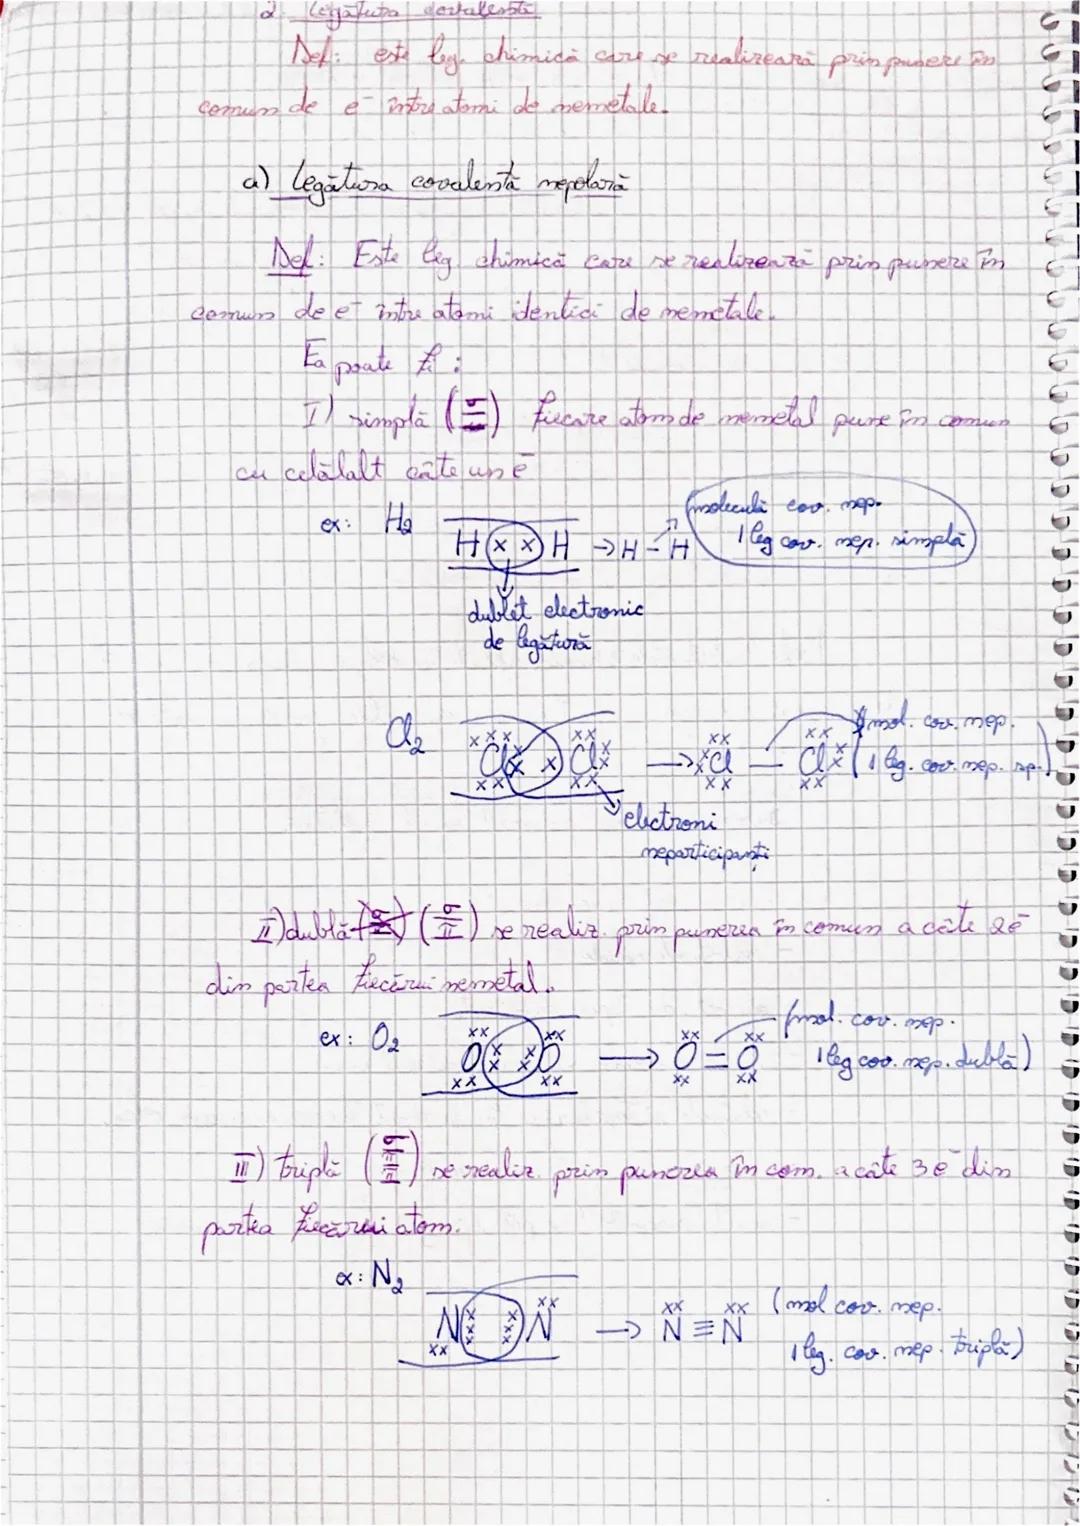 2. Legătura covalentă
Def: este leg. chimică care se realizează prin punere în
comun de e⁻ între atomi de nemetale.
a) Legătura covalentă nepolară
Def: Este leg. chimică care se realizează prin punere în
comun de e⁻ între atomi identici de nemetale.
Ea poate fi:
I) simplă (σ) fiecare atom de nemetal pune în comun
cu celălalt câte un e⁻
ex: H₂ H(x x)H → H - H (moleculă cov. nep.
1 leg cov. nep. simplă)
dublet electronic
de legătură
Cl₂ Cl x x Cl → Cl — Cl (mol. cov. nep.
1 leg. cov. nep. sp.)
electroni
neparticipanți
II) dublă (σ/π) se realiz. prin punerea în comun a câte 2e⁻
din partea fiecărui nemetal.
ex: O₂ O xx xx O → O = O (mol. cov. nep.
1 leg cov. nep. dublă)
III) triplă (σ/π/π) se realiz. prin punerea în com. a câte 3e⁻ din
partea fiecărui atom.
ex: N₂ N xxx xxx N → N ≡ N (mol cov. nep.
1 leg. cov. nep. triplă)